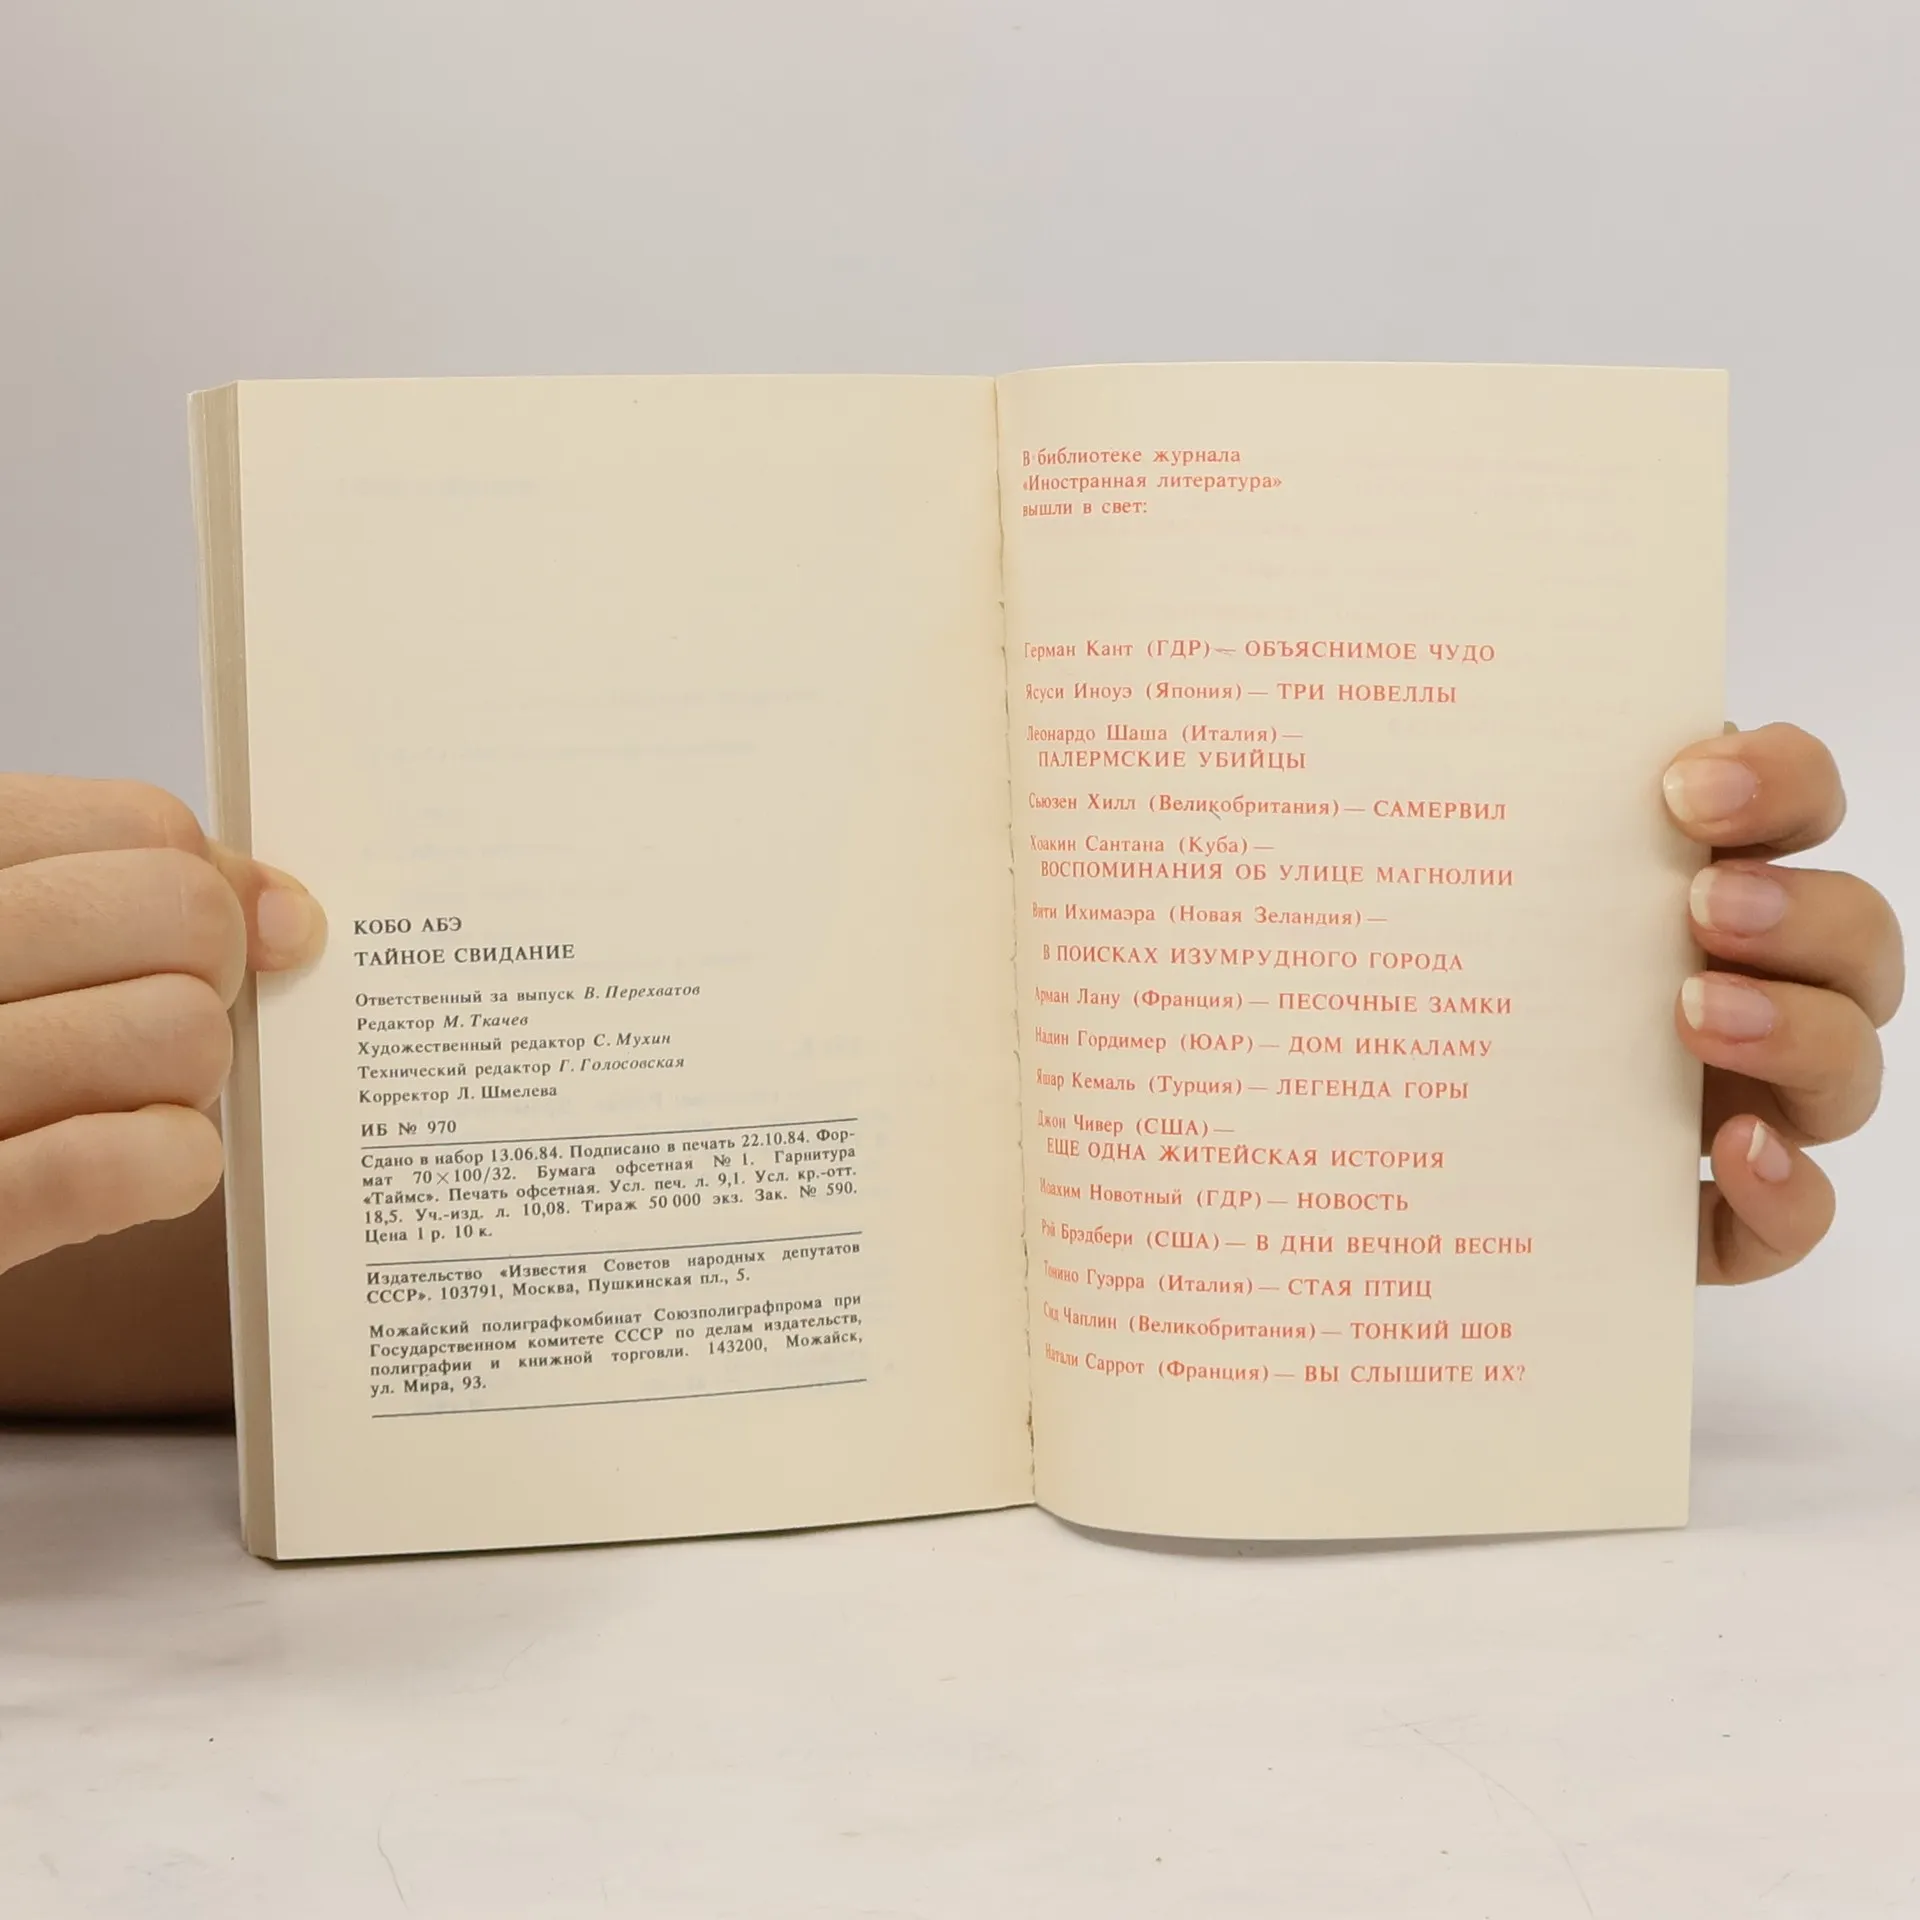 КОБО АБЭ
ТАЙНОЕ СВИДАНИЕ
Ответственный за выпуск В. Перехватов
Редактор М. Ткачев
Художественный редактор С. Мухин
Технический редактор Г. Голосовская
Корректор Л. Шмелева
ИБ № 970
Сдано в набор 13.06.84. Подписано в печать 22.10.84. Фор-
мат 70×100/32. Бумага офсетная № 1. Гарнитура
«Таймс». Печать офсетная. Усл. печ. л. 9,1. Усл. кр.-отт.
18,5. Уч.-изд. л. 10,08. Тираж 50 000 экз. Зак. № 590.
Цена 1 р. 10 к.
Издательство «Известия Советов народных депутатов
СССР». 103791, Москва, Пушкинская пл., 5.
Можайский полиграфкомбинат Союзполиграфпрома при
Государственном комитете СССР по делам издательств,
полиграфии и книжной торговли. 143200, Можайск,
ул. Мира, 93.
В библиотеке журнала
«Иностранная литература»
вышли в свет:
Герман Кант (ГДР) — ОБЪЯСНИМОЕ ЧУДО
Ясуси Иноуэ (Япония) — ТРИ НОВЕЛЛЫ
Леонардо Шаша (Италия) —
ПАЛЕРМСКИЕ УБИЙЦЫ
Сьюзен Хилл (Великобритания) — САМЕРВИЛ
Хоакин Сантана (Куба) —
ВОСПОМИНАНИЯ ОБ УЛИЦЕ МАГНОЛИИ
Вити Ихимаэра (Новая Зеландия) —
В ПОИСКАХ ИЗУМРУДНОГО ГОРОДА
Арман Лану (Франция) — ПЕСОЧНЫЕ ЗАМКИ
Надин Гордимер (ЮАР) — ДОМ ИНКАЛАМУ
Яшар Кемаль (Турция) — ЛЕГЕНДА ГОРЫ
Джон Чивер (США) —
ЕЩЕ ОДНА ЖИТЕЙСКАЯ ИСТОРИЯ
Иоахим Новотный (ГДР) — НОВОСТЬ
Рэй Брэдбери (США) — В ДНИ ВЕЧНОЙ ВЕСНЫ
Тонино Гуэрра (Италия) — СТАЯ ПТИЦ
Сид Чаплин (Великобритания) — ТОНКИЙ ШОВ
Натали Саррот (Франция) — ВЫ СЛЫШИТЕ ИХ?